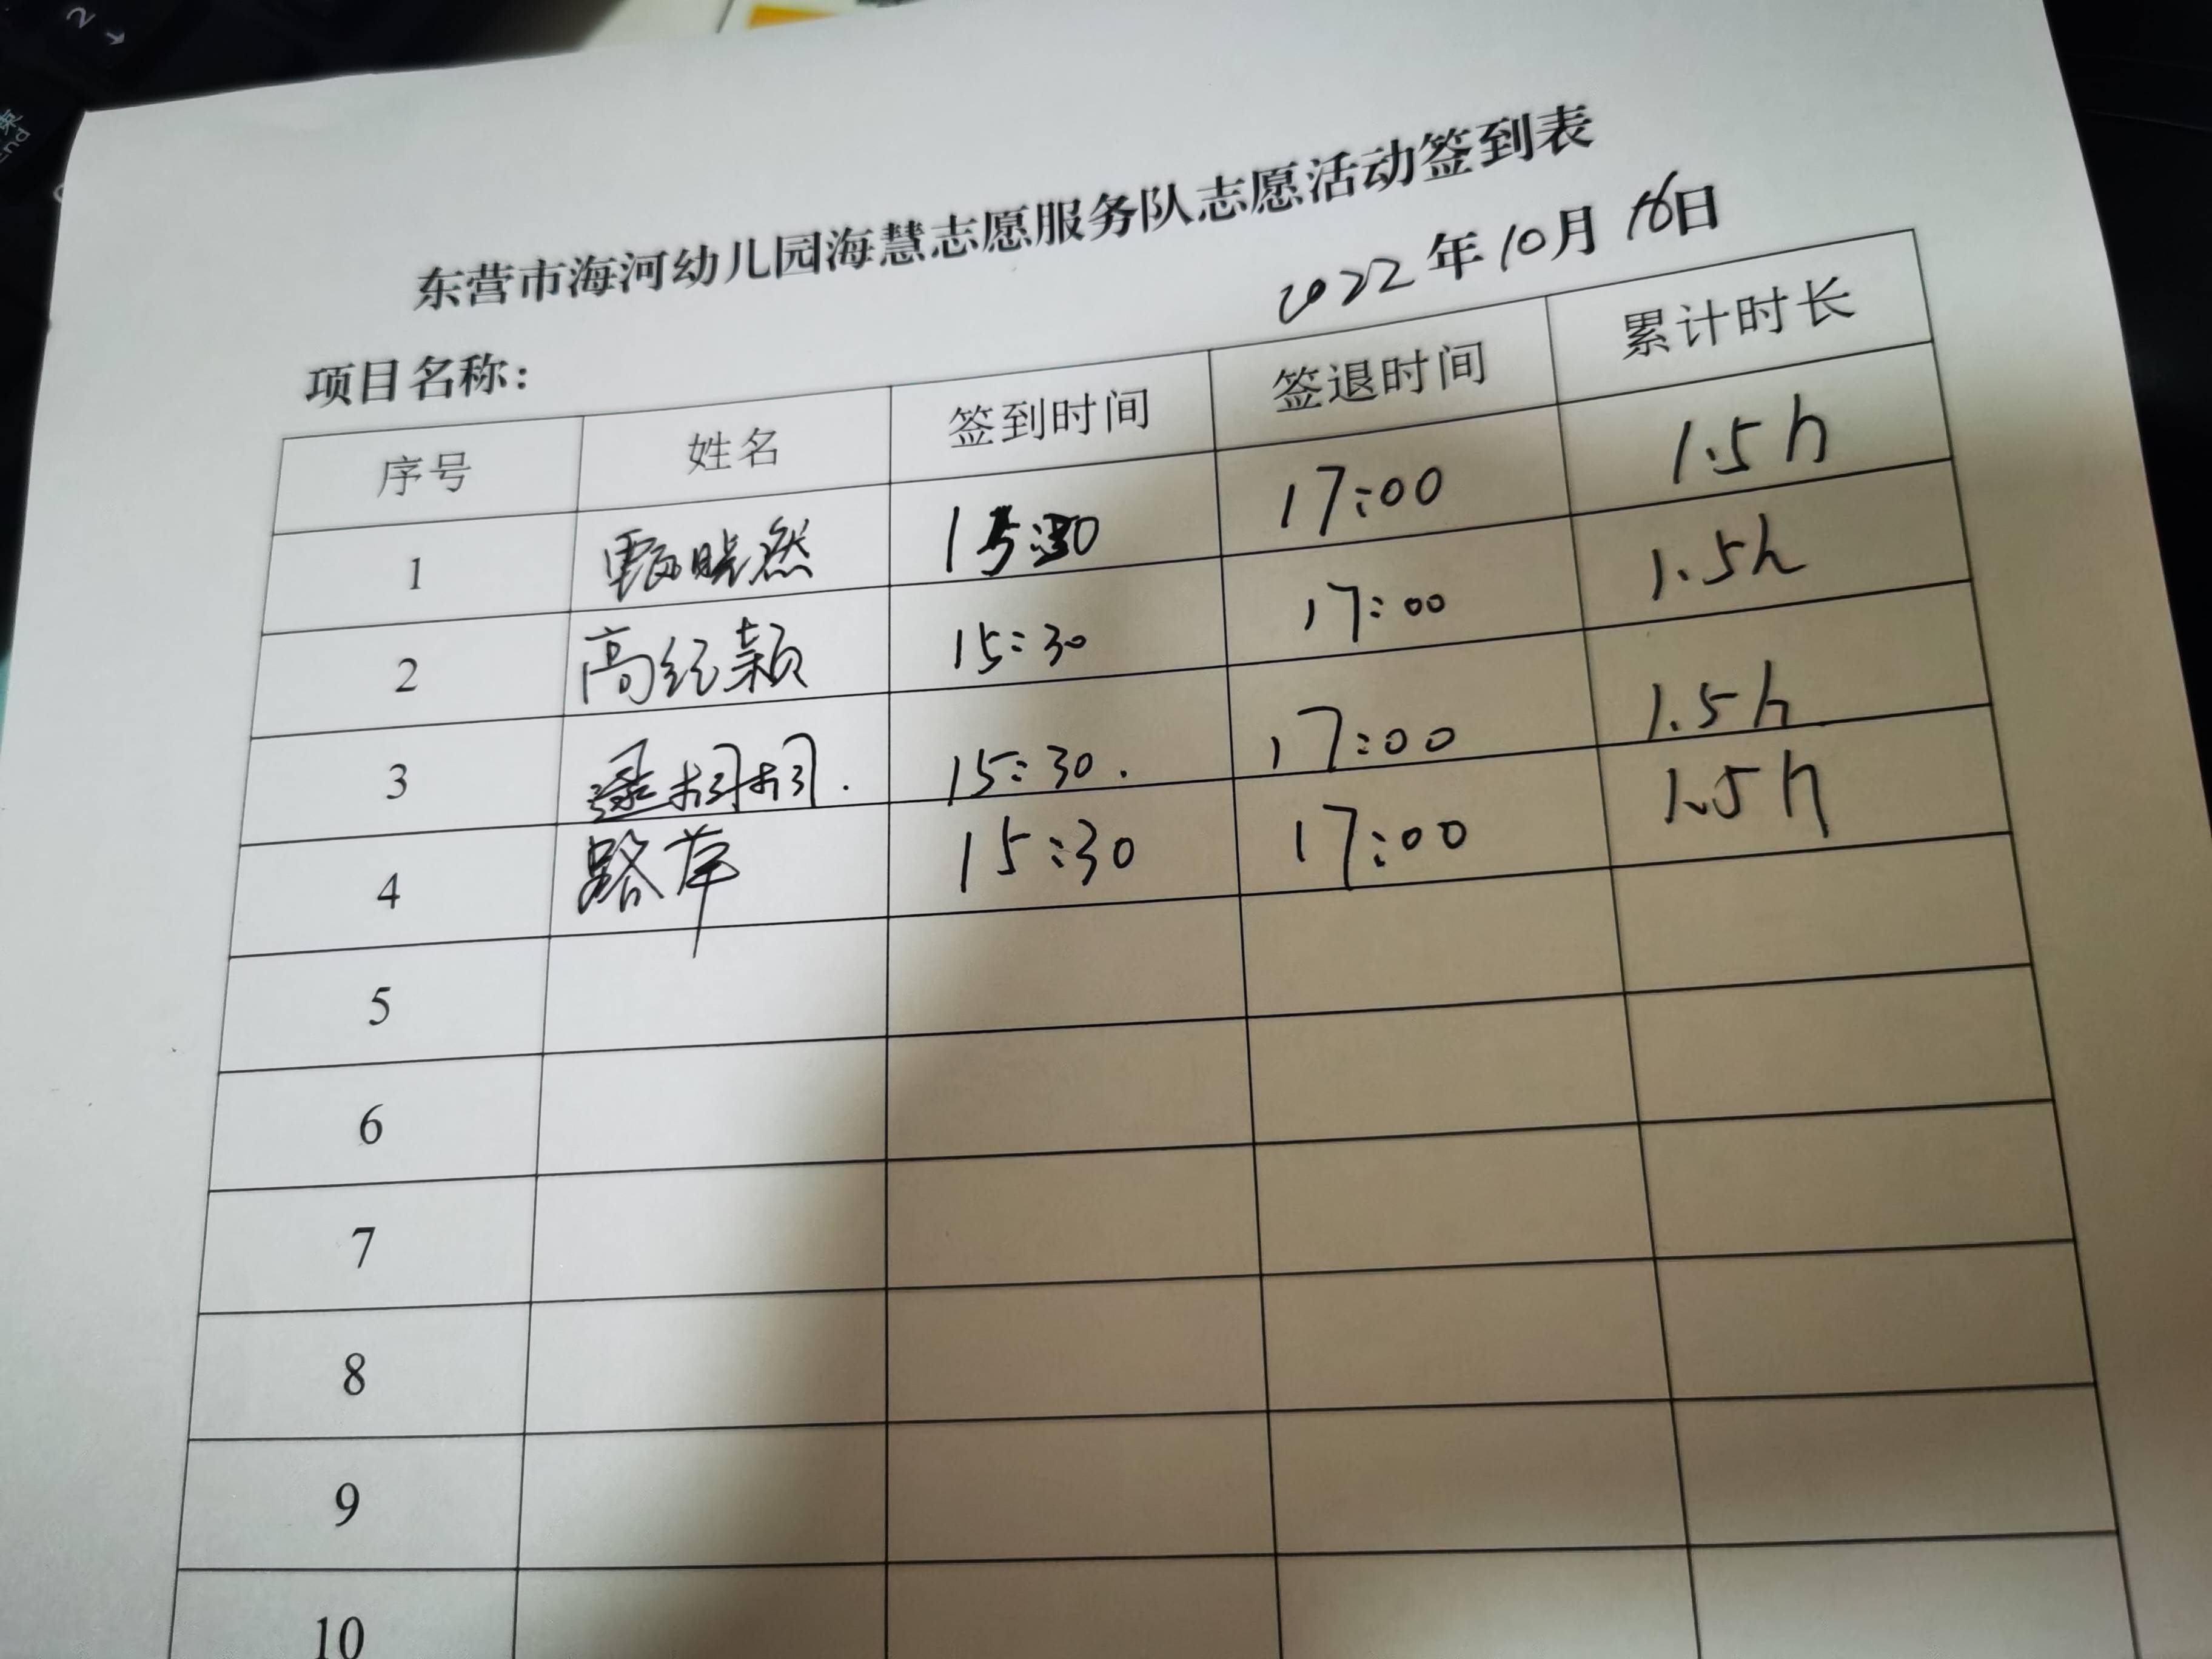 东营市海河幼儿园海慧志愿服务队志愿活动签到表
2022年10月16日
项目名称:
序号 姓名 签到时间 签退时间 累计时长
1 甄晓然 15:30 17:00 1.5h
2 高红颖 15:30 17:00 1.5h
3 逯相相. 15:30. 17:00 1.5h
4 路萍 15:30 17:00 1.5h
5
6
7
8
9
10
2
End